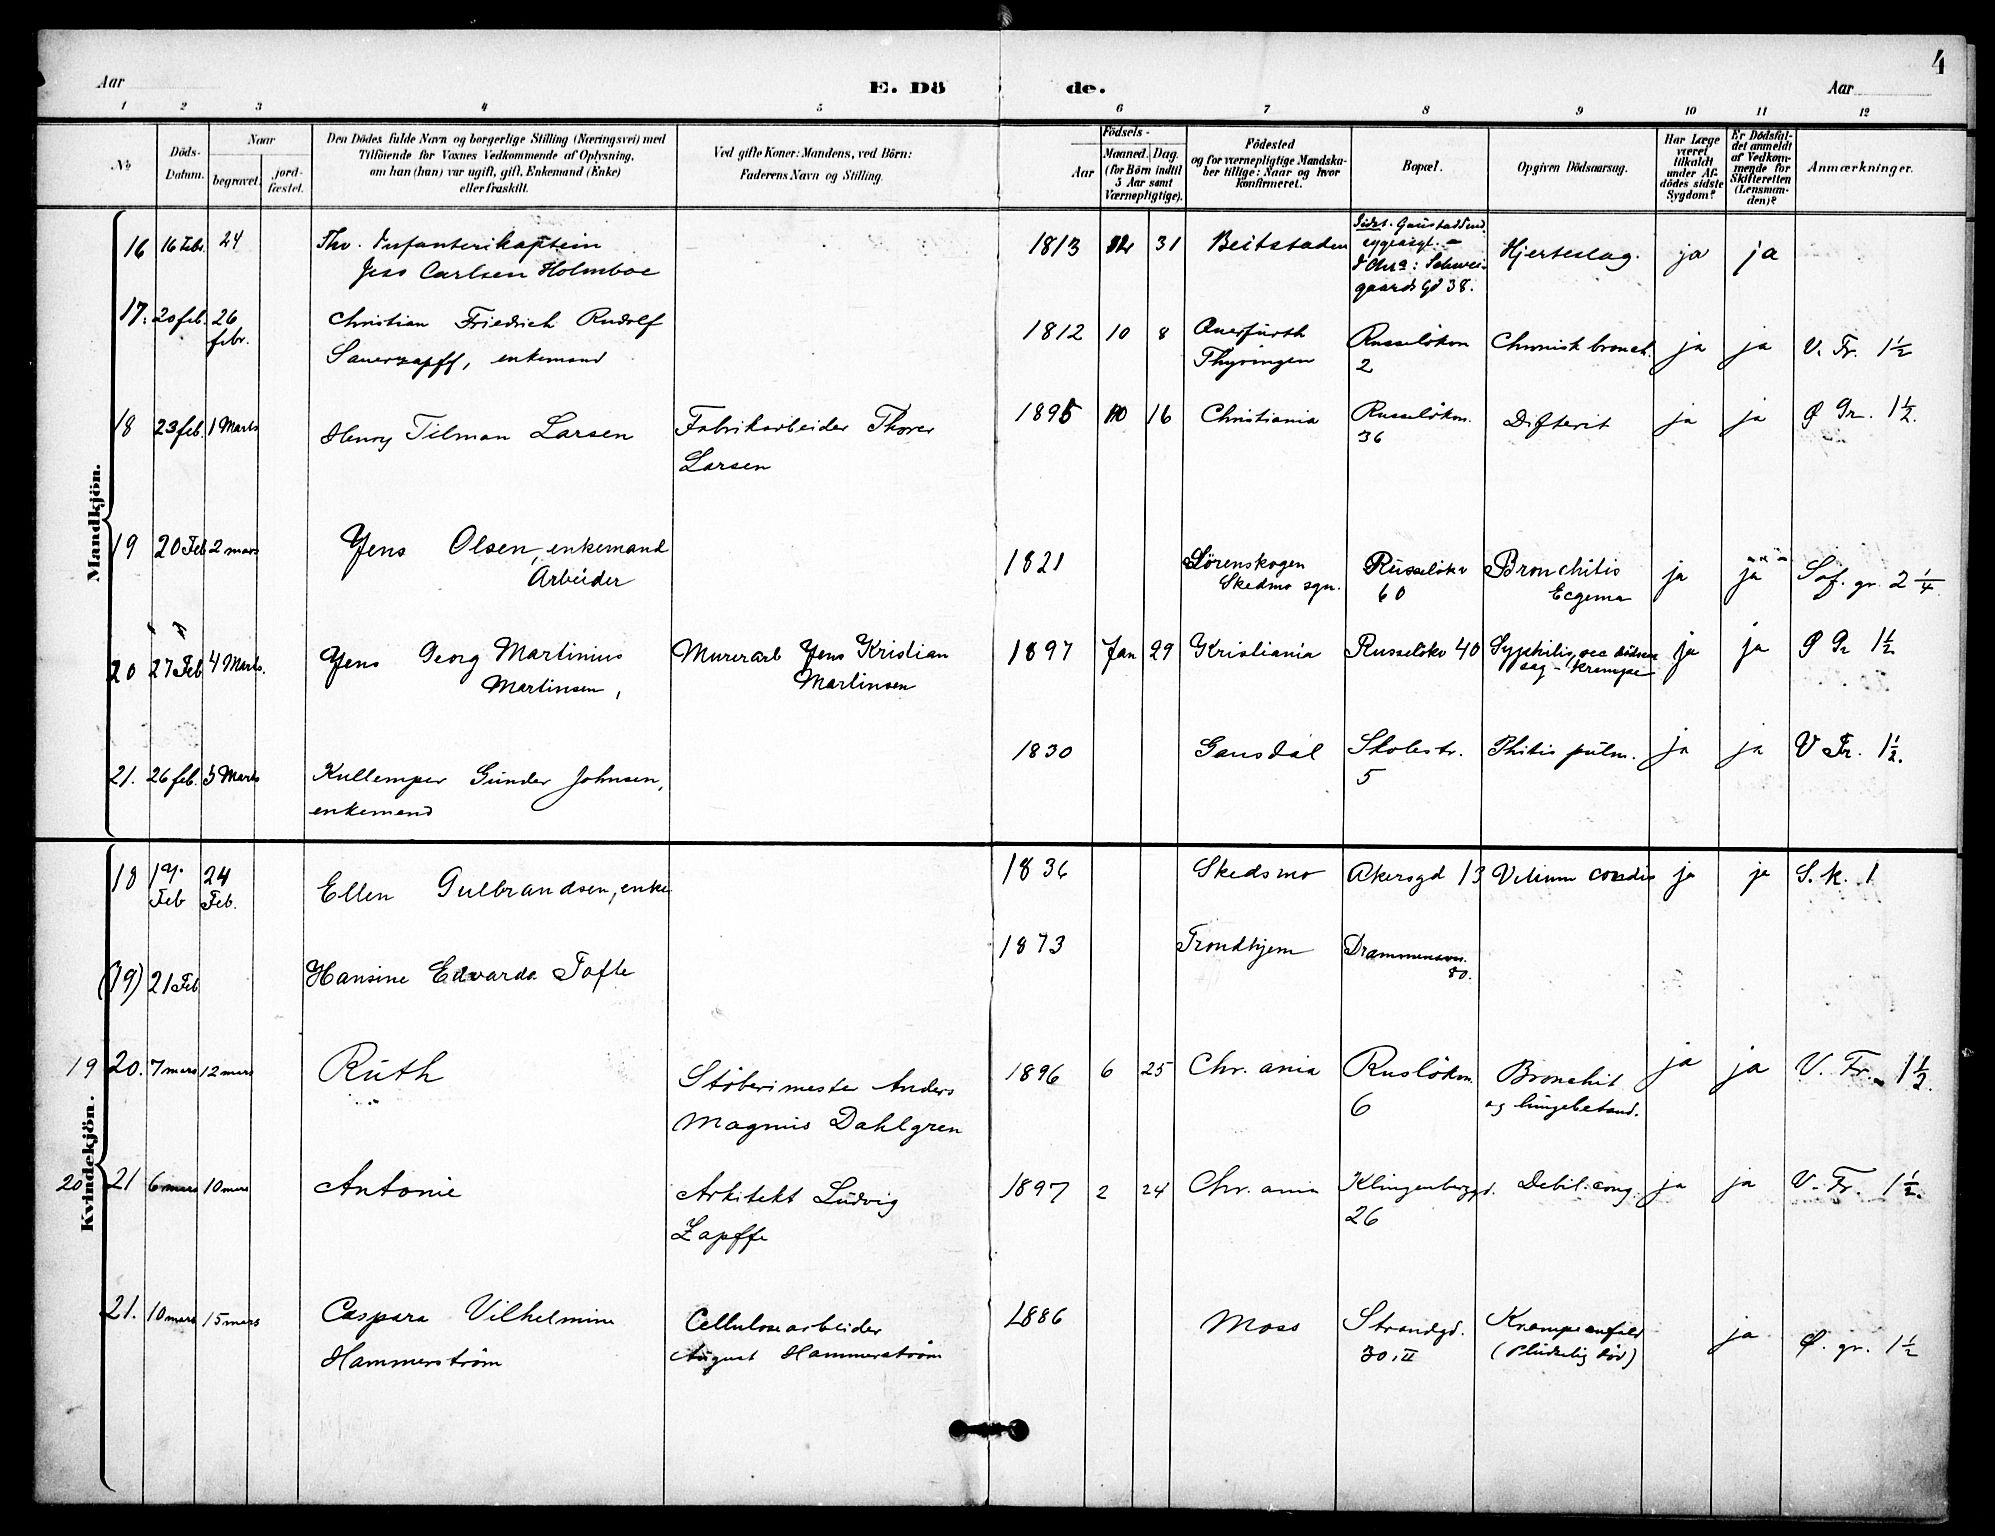 4
Aar
E. Dö
de.
Aar
1 2 3 4 5 6 7 8 9 10 11 12
No
Döds-
Datum.
Naar
begravet.
jord-
fæstet.
Den Dödes fulde Navn og borgerlige Stilling (Næringsvei) med
Tilföiende for Voxnes Vedkommende af Oplysning,
om han (hun) var ugift, gift, Enkemand (Enke)
eller fraskilt.
Ved gifte Koner: Mandens, ved Börn:
Faderens Navn og Stilling.
Födsels-
Aar
Maaned. Dag.
(for Börn indtil
5 Aar samt
Værnepligtige).
Födested
og for værnepligtige Mandska-
ber tillige: Naar og hvor
konfirmeret.
Bopæl.
Opgiven Dödsaarsag.
Har Læge
været
tilkaldt
under Af-
dödes sidste
Sygdom?
Er Dödsfal-
det anmeldt
af Vedkom-
mende for
Skifteretten
(Lensman-
den)?
Anmærkninger.
Mandkjön.
16 16 Febr. 24 Infanterikaptein 1813 12 31 Beitstaden Hjerteslag. ja ja
Jess Carlsen Holmboe
gaards Gd 38.
17. 20 feb. 26 Christian Friedrich Rudolf 1812 10 8 Querfurth Russeløkv 2 Chronisk bronch. ja ja V. Fr. 1½
febr. Sauerzapff, enkemand Thyringen
18 23 feb. 1 Marts Henry Tilman Larsen Fabrikarbeider Thorer 1895 10 16 Christiania Russeløkv. 36 Difterit ja ja Ø Gr. 1½.
Larsen
19 20 Feb 2 mars Jens Olsen, enkemand 1821 Lørenskogen Russeløkv 60 Bronchitis ja ja Sof. gr. 2¼
Arbeider Skedmo sgn. Ecgema
20 27 Feb 4 Marts. Jens Georg Martinius Murerarb Jens Kristian 1897 Jan 29 Kristiania Russeløkv 40 Syphilis, ja ja Ø Gr 1½
Martinsen, Martinsen krampe
21. 26 feb. 5 Marts Kullemper Gunder Johnsen, 1830 Gausdal Skolestr. 5 Phitis pulm. ja ja V Fr. 1½.
enkemand
Kvindekjön.
18 19. Feb 24 Feb. Ellen Gulbrandsen, enke 1836 Skedsmo Akersgd 13 Vitium cordis ja ja S. k. 1
(19) 21 Feb Hansine Edvarda Tofte 1873 Trondhjem Drammensv. 80.
19 20. 7 mars 12 mars Ruth Støberimester Anders 1896 6 25 Chr. ania Rusløkv. 6 Bronchit ja ja V. Fr. 1½.
Magnus Dahlgren og lungebetænd.
20 21 6 mars 10 mars Antonie Arkitekt Ludvig 1897 2 24 Chr. ania Klingenberggd. 26 Debil. cong. ja ja V. Fr. 1½.
Zapffe
21. 10 mars 15 mars Caspara Vilhelmine Cellulosearbeider 1886 Moss Strandgd. 30, II Krampeanfald ja Ø. gr. 1½
Hammerstrøm August Hammerstrøm (Pludselig død)